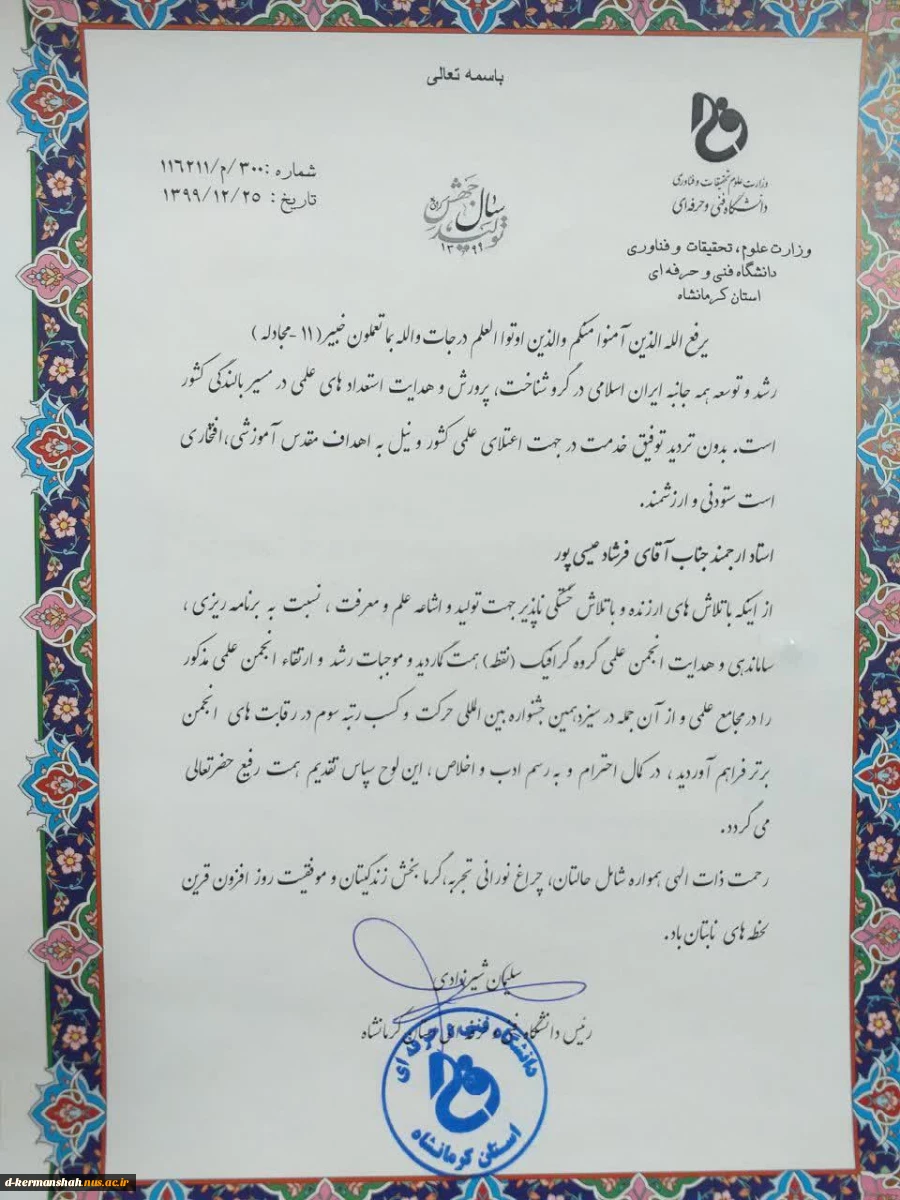 باسمه تعالی
وزارت علوم تحقیقات و فناوری
دانشگاه فنی و حرفه‌ای
شماره : ۳۰۰/م/۱۱۶۲۱۱
تاریخ : ۱۳۹۹/۱۲/۲۵
سال جهش تولید
۱۳۹۹
وزارت علوم، تحقیقات و فناوری
دانشگاه فنی و حرفه ای
استان کرمانشاه
یرفع الله الذین آمنوا منکم والذین اوتوا العلم درجات والله بما تعملون خبیر (۱۱ -مجادله )
رشد و توسعه همه جانبه ایران اسلامی در گرو شناخت، پرورش و هدایت استعداد های علمی در مسیر بالندگی کشور
است. بدون تردید توفیق خدمت در جهت اعتلای علمی کشور و نیل به اهداف مقدس آموزشی،افتخاری
است ستودنی و ارزشمند.
استاد ارجمند جناب آقای فرشاد عیسی پور
از اینکه با تلاش های ارزنده و با تلاش خستگی ناپذیر جهت تولید و اشاعه علم و معرفت ، نسبت به برنامه ریزی ،
ساماندهی و هدایت انجمن علمی گروه گرافیک (نقطه) همت گماردید و موجبات رشد و ارتقاء انجمن علمی مذکور
را در مجامع علمی و از آن جمله در سیزدهمین جشنواره بین المللی حرکت و کسب رتبه سوم در رقابت های انجمن
برتر فراهم آوردید ، در کمال احترام و به رسم ادب و اخلاص ، این لوح سپاس تقدیم همت رفیع حضرتعالی
می گردد.
رحمت ذات الهی همواره شامل حالتان، چراغ نورانی تجربه،گرما بخش زندگیتان و موفقیت روز افزون قرین
لحظه های نابتان باد.
سلیمان شیرنوادی
رئیس دانشگاه فنی و حرفه ای استان کرمانشاه
دانشگاه فنی و حرفه ای
استان کرمانشاه
d-kermanshah.nus.ac.ir